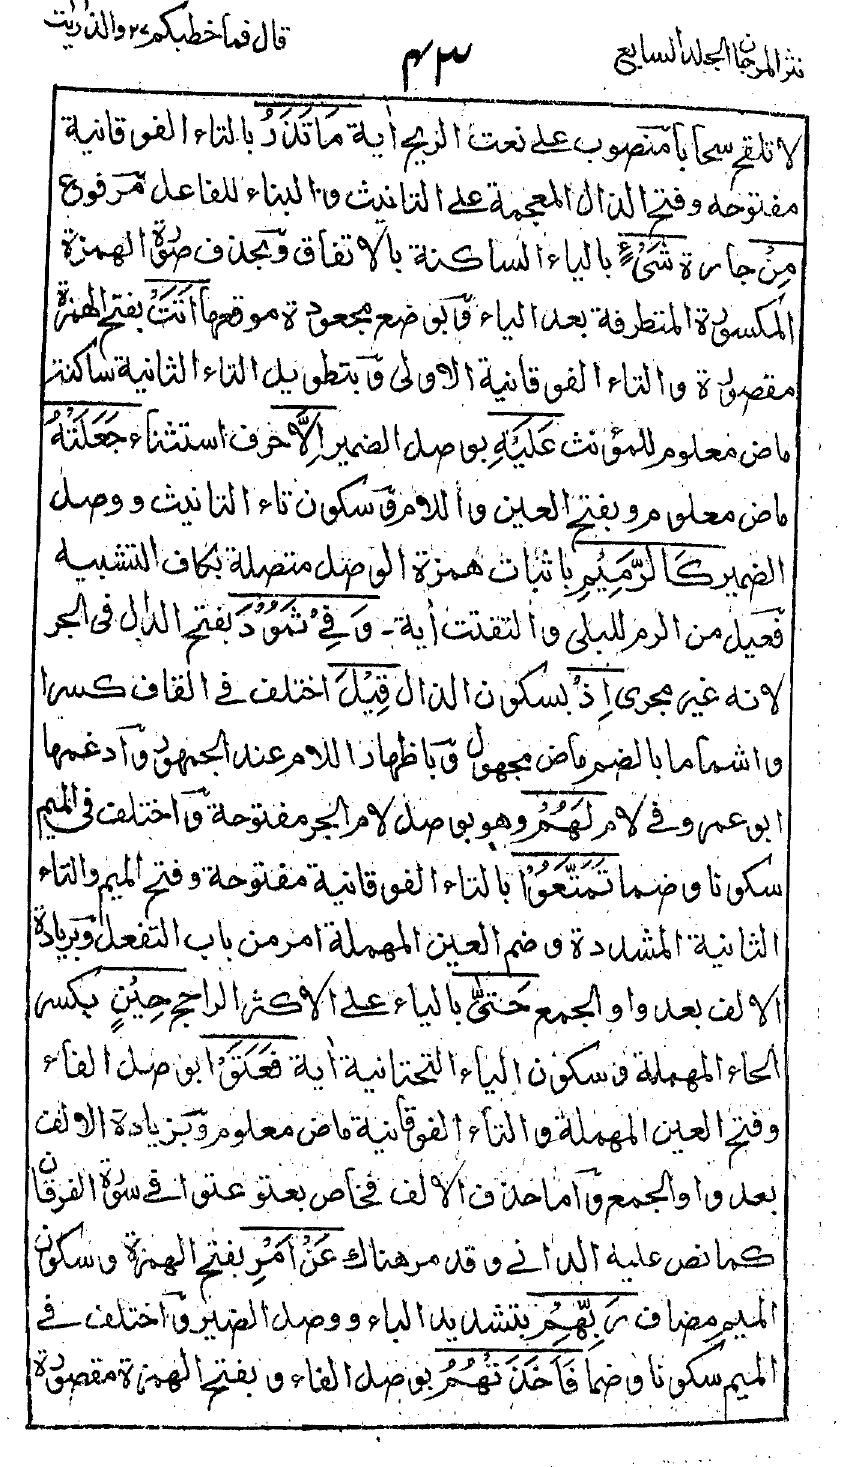 نثر المرجان الجلد السابع
٤٣
قال فما خطبكم ٢٧ والذاريات
لا تلقح سحابا منصوب على نعت الريح اٰية مَا تَذَرُ بالتاء الفوقانية
مفتوحة وفتح الذال المعجمة على التانيث والبناء للفاعل مرفوع
مِنْ جارة شَيْءٍ بالياء الساكنة بالاتفاق وبحذف صورة الهمزة
المكسورة المتطرفة بعد الياء وبوضع مجعودة موقعها اَتَتْ بفتح الهمزة
مقصورة والتاء الفوقانية الاولى وبتطويل التاء الثانية ساكنة
ماض معلوم للمؤنث عَلَيْهِ بوصل الضمير اِلَّا حرف استثناء جَعَلَتْهُ
ماض معلوم وبفتح العين واللام وسكون تاء التانيث ووصل
الضمير كَالرَّمِيْمِ باثبات همزة الوصل متصلة بكاف التشبيه
فعيل من الرم للبلى والتفتت اٰية ـ وَفِيْ ثَمُوْدَ بفتح الدال فى الجر
لانه غير مجرى اِذْ بسكون الذال قِيْلَ اختلف في القاف كسرا
واشماما بالضم ماض مجهول وباظهار اللام عند الجمهور وادغمها
ابو عمرو في لام لَهُمْ وهو بوصل لام الجر مفتوحة واختلف فى الميم
سكونا وضما تَمَتَّعُوْا بالتاء الفوقانية مفتوحة وفتح الميم والتاء
الثانية المشددة وضم العين المهملة امر من باب التفعل وبزيادة
الالف بعد واو الجمع حَتّٰى بالياء على الاكثر الراجح حِيْنٍ بكسر
الحاء المهملة وسكون الياء التحتانية اٰية فَعَتَوْا بوصل الفاء
وفتح العين المهملة والتاء الفوقانية ماض معلوم وبزيادة الالف
بعد واو الجمع واما حذف الالف فخاص بعتو عتوا في سورة الفرقان
كما نص عليه الداني وقد مر هناك عَنْ اَمْرِ بفتح الهمزة وسكون
الميم مضاف رَبِّهِمْ بتشديد الباء ووصل الضمير واختلف في
الميم سكونا وضما فَاَخَذَتْهُمُ بوصل الفاء وبفتح الهمزة مقصورة